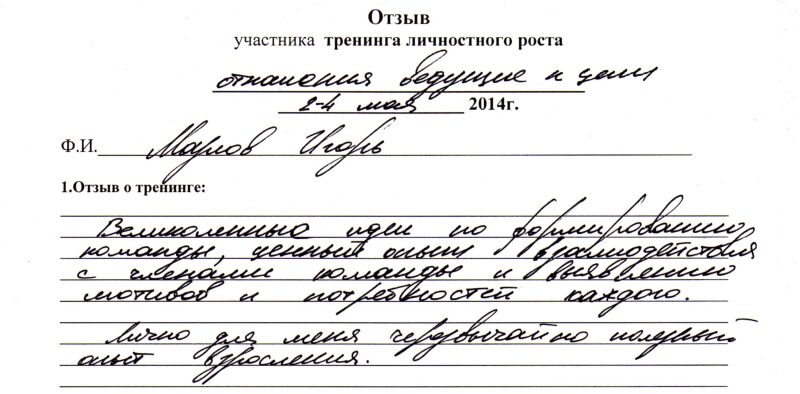 Отзыв
участника тренинга личностного роста
отношения ведущие к цели
2-4 мая 2014г.
Ф.И. Марлов Игорь
1.Отзыв о тренинге:
Великоленные идеи по формированию
команды, ценный опыт взаимодействия
с членами команды и выявлению
мотивов и потребностей каждого.
Лично для меня черезвычайно полезный
опыт взросления.